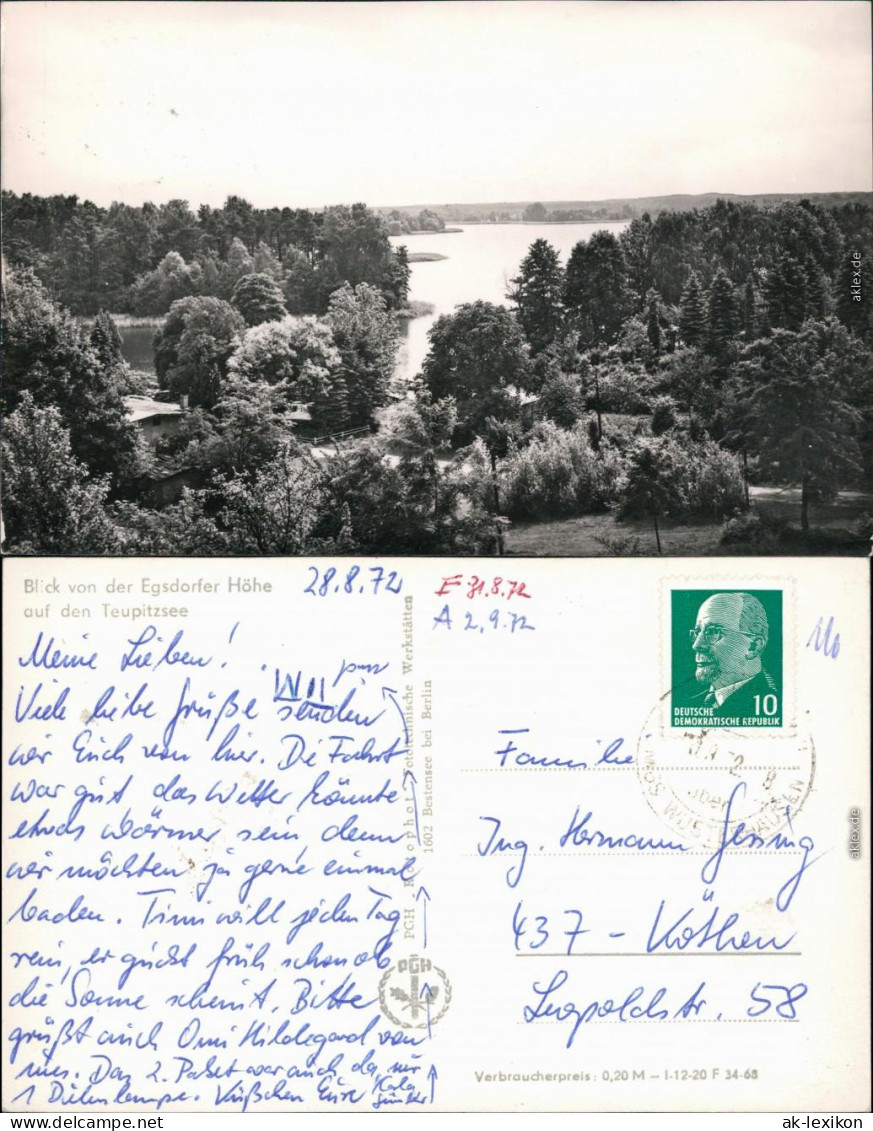 aklex.de
Blick von der Egsdorfer Höhe
auf den Teupitzsee
28.8.72
E 31.8.72
A 2.9.72
Meine Lieben!
Viele liebe Grüße senden
wir Euch von hier. Die Fahrt
war gut das Wetter könnte
etwas wärmer sein denn
wir möchten ja gerne einmal
baden. Timi will jeden Tag
rein, er guckt früh schon ob
die Sonne scheint. Bitte
grüßt auch Omi Hildegard von
uns. Das 2. Paket war auch da, nur
1 Dielenlampe. Küßchen Eure Karla
Günther
PGH Rotophot Fototechnische Werkstätten
1602 Bestensee bei Berlin
PGH
DEUTSCHE 10
DEMOKRATISCHE REPUBLIK
KÖNIGS WUSTERHAUSEN
Familie
Ing. Hermann Gessing
437 - Köthen
Leopoldstr. 58
Verbraucherpreis: 0,20 M – I-12-20 F 34-68
aklex.de
delcampe.net
ak-lexikon